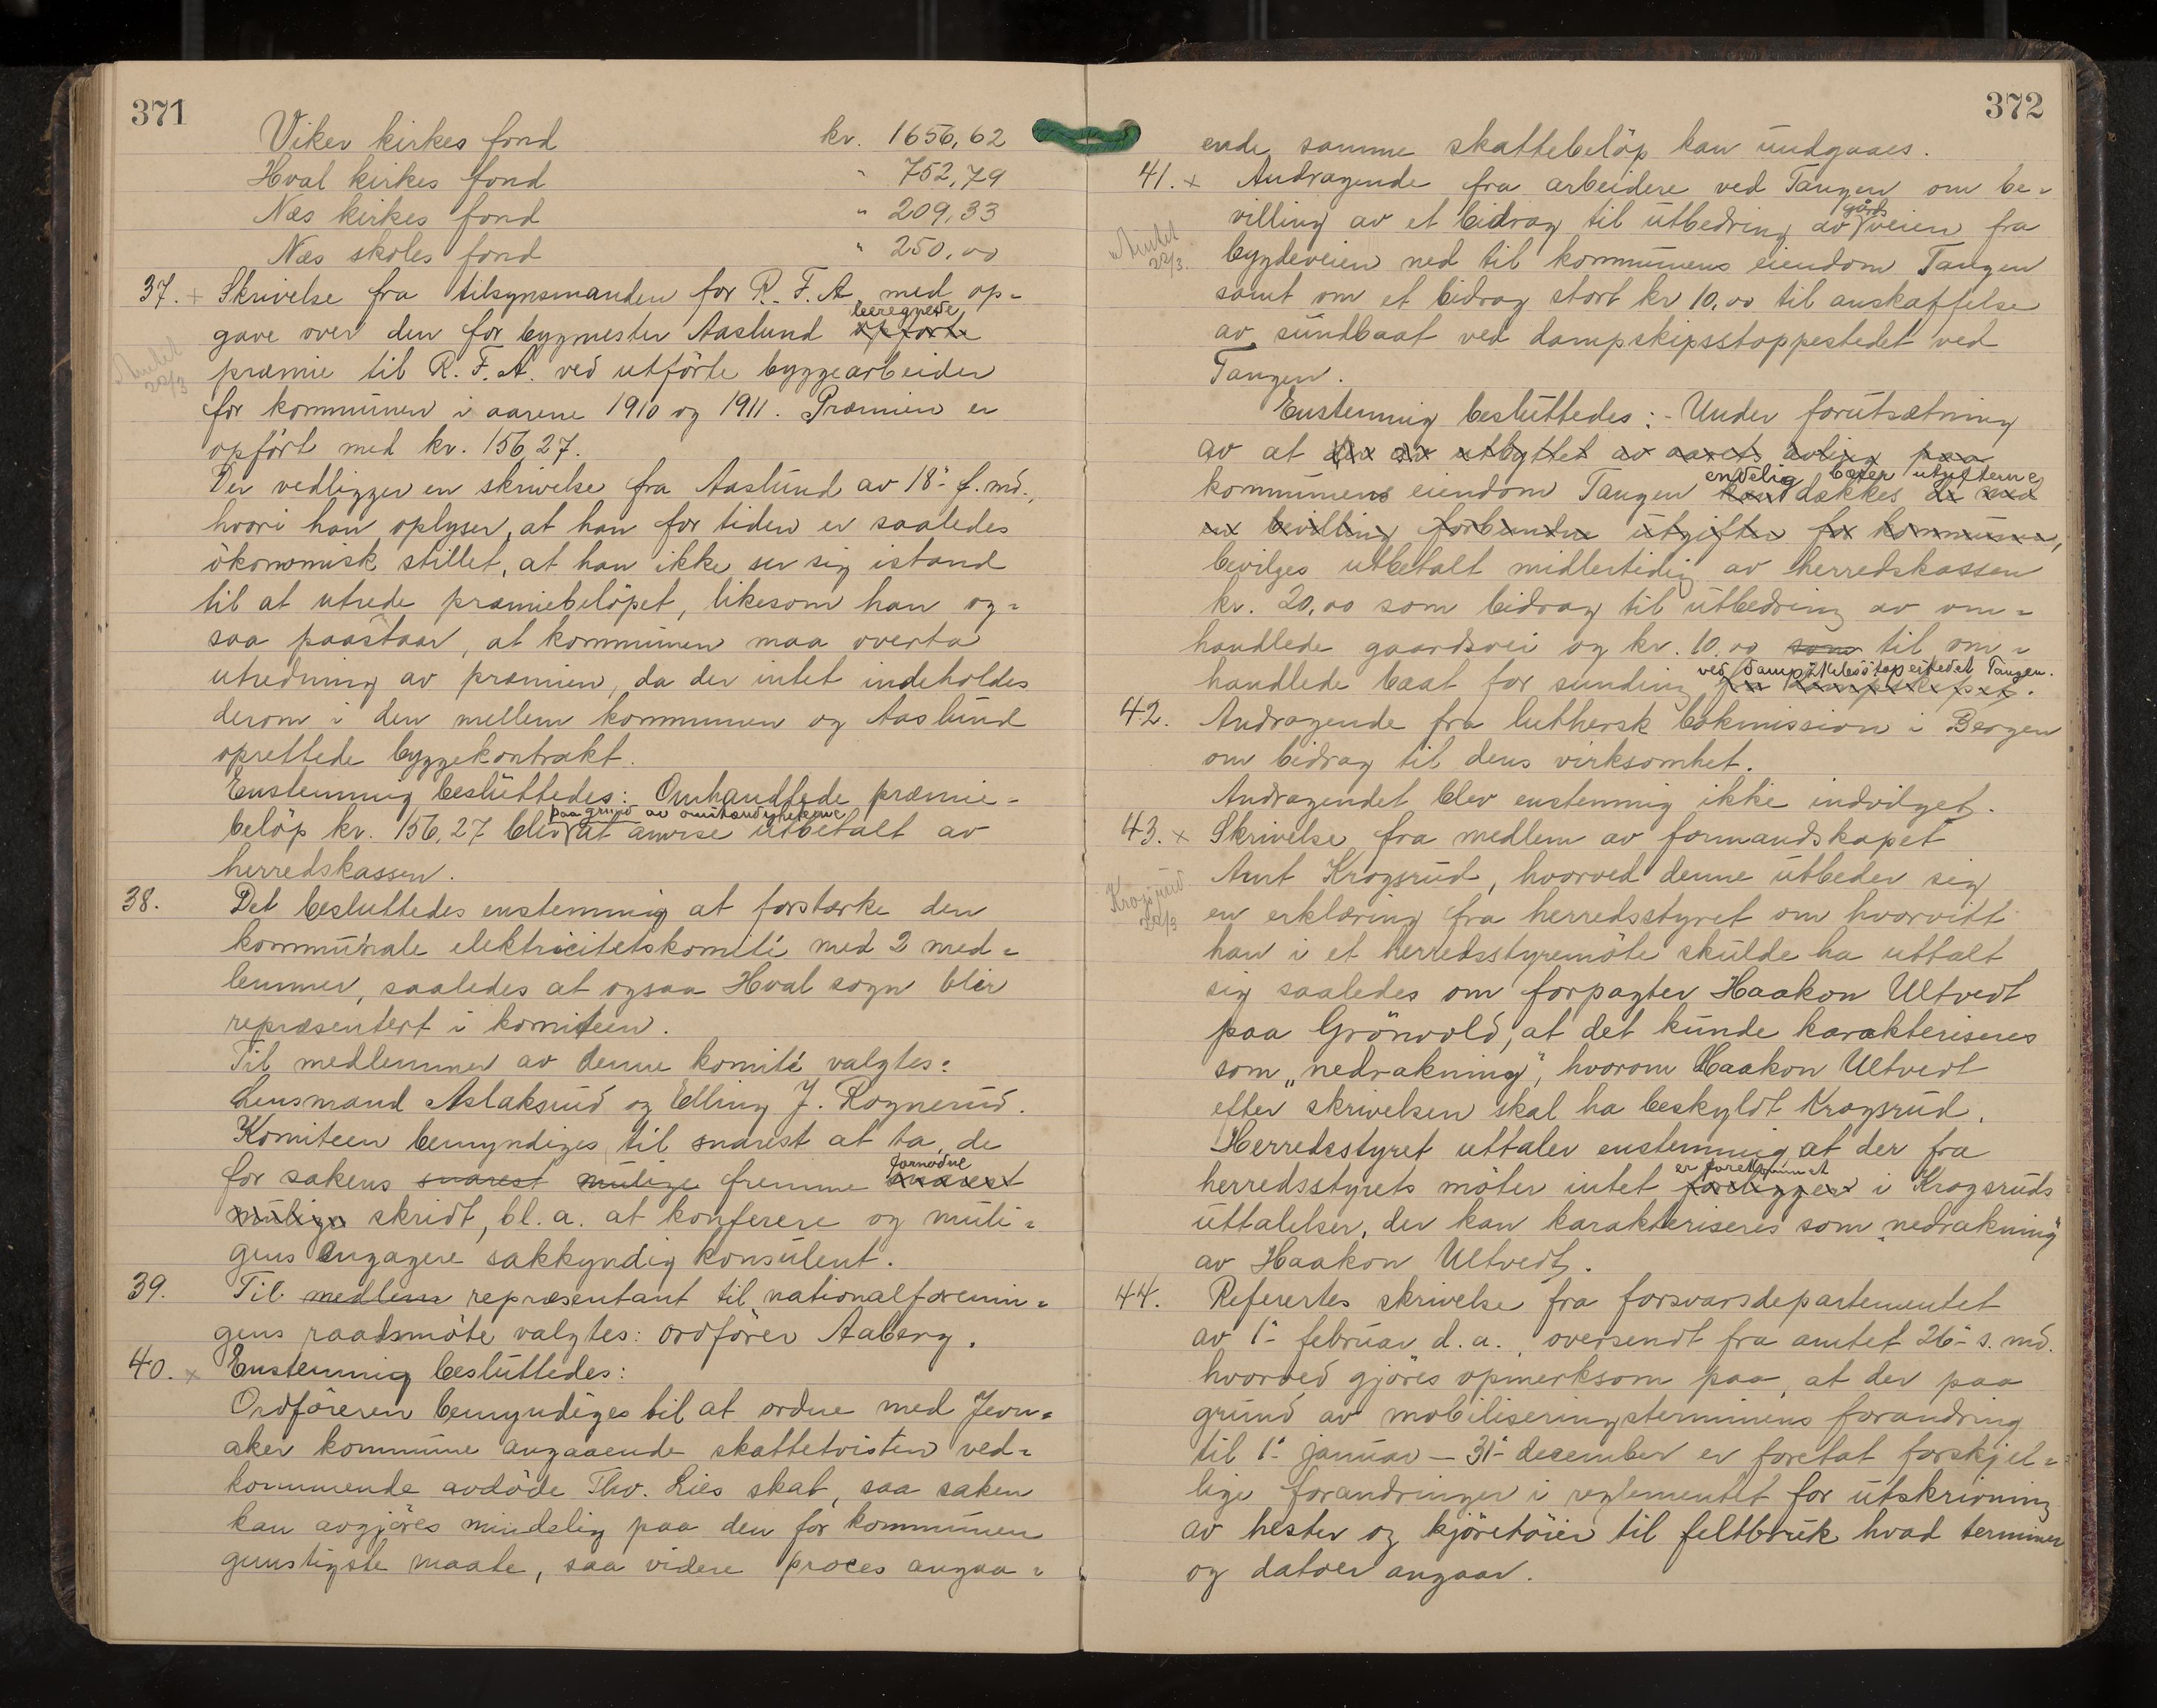 371
Viker kirkes fond kr. 1656,62
Hval kirkes fond " 752,79
Næs kirkes fond " 209,33
Næs skoles fond " 250,00
37. + Skrivelse fra tilsynsmanden for R. F. A. med op=
beregnede
gave over den for bygmester Aaslund opförte
præmie til R. F. A. ved utförte byggearbeider
Amtet
22/3
for kommunen i aarene 1910 og 1911. Præmien er
opfört med kr. 156,27.
Der vedligger en skrivelse fra Aaslund av 18- f. md.,
hvori han oplyser, at han for tiden er saaledes
ökonomisk stillet, at han ikke ser sig istand
til at utrede præmiebelöpet, likesom han og=
saa paastaar, at kommunen maa overta
utredning av præmien, da der intet indeholdes
derom i den mellem kommunen og Aaslund
oprettede byggekontrakt.
Enstemmig besluttedes: Omhandlede præmie=
paa grund av omstændighetene
belöp kr. 156,27 blir at anvise utbetalt av
herredskassen.
38. Det besluttedes enstemmig at forstærke den
kommunale elektricitetskomité med 2 med=
lemmer, saaledes at ogsaa Hval sogn blir
repræsentert i komiteen.
Til medlemmer av denne komité valgtes:
Lensmand Aslaksrud og Elling J. Rognerud.
Komiteen bemyndiges til snarest at ta de
fornödne
for sakens snarest mulige fremme snarest
mulige skridt, bl. a. at konferere og muli=
gens engagere sakkyndig konsulent.
39. Til medlem repræsentant til nationalforenin=
gens raadsmöte valgtes: ordförer Aaberg.
40. x Enstemmig besluttedes:
Ordföreren bemyndiges til at ordne med Jevn=
aker kommune angaaende skattetvisten ved=
kommende avdöde Thv. Lies skat, saa saken
kan avgjöres mindelig paa den for kommunen
gunstigste maate, saa videre proces angaa=
372
ende samme skattebelöp kan undgaaes.
41. x Andragende fra arbeidere ved Tangen om be=
gårds
villing av et bidrag til utbedring av veien fra
Amtet
22/3.
bygdeveien ned til kommunens eiendom Tangen
samt om et bidrag stort kr 10,00 til anskaffelse
av sundbaat ved dampskipsstoppestedet ved
Tangen.
Enstemmig besluttedes: - Under forutsætning
av at der av utbyttet av aarets avling paa
endelig bærer utgifterne
kommunens eiendom Tangen kan dækkes de med
en bevilling forbundne utgifter for kommunen,
bevilges utbetalt midlertidig av herredskassen
kr. 20,00 som bidrag til utbedring av om=
handlede gaardsvei og kr. 10.00 som til om=
ved dampskibsstopestedet Tangen.
handlede baat for sunding fra dampskipet.
42. Andragende fra luthersk bokmission i Bergen
om bidrag til dens virksomhet.
Andragendet blev enstemmig ikke indvilget.
43. x Skrivelse fra medlem av formandskapet
Arnt Krogsrud, hvorved denne utbeder sig
Krogsrud
22/3
en erklæring fra herredsstyret om hvorvitt
han i et herredsstyremöte skulde ha uttalt
sig saaledes om forpagter Haakon Ultvedt
paa Grönvold, at det kunde karakteriseres
som „nedrakning", hvorom Haakon Ultvedt
efter skrivelsen skal ha beskyldt Krogsrud.
Herredsstyret uttaler enstemmig at der fra
er forekommet
herredsstyrets möter intet foreligger i Krogsruds
uttalelser, der kan karakteriseres som „nedrakning"
av Haakon Ultvedt.
44. Refererttes skrivelse fra forsvarsdepartementet
av 1- februar d. a., oversendt fra amtet 26- s. md.
hvorved gjöres opmerksom paa, at der paa
grund av mobiliseringsterminens forandring
til 1- januar — 31- december er foretat forskjel=
lige forandringer i reglementet for utskrivning
av hester og kjöretöier til feltbruk hvad terminer
og datoer angaar.